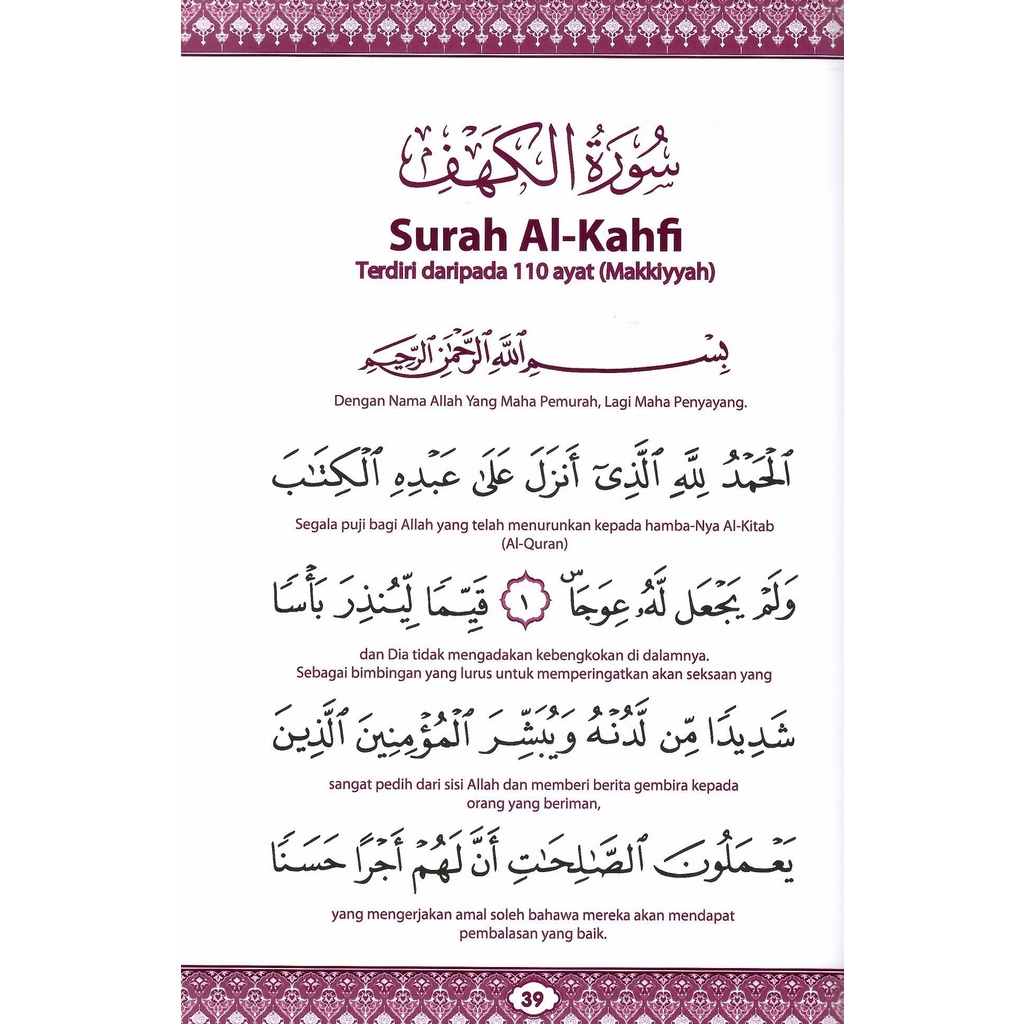 سُورَةُ الْكَهْفِ
Surah Al-Kahfi
Terdiri daripada 110 ayat (Makkiyyah)
بِسْمِ اللَّهِ الرَّحْمَٰنِ الرَّحِيمِ
Dengan Nama Allah Yang Maha Pemurah, Lagi Maha Penyayang.
ٱلْحَمْدُ لِلَّهِ ٱلَّذِىٓ أَنزَلَ عَلَىٰ عَبْدِهِ ٱلْكِتَـٰبَ
Segala puji bagi Allah yang telah menurunkan kepada hamba-Nya Al-Kitab
(Al-Quran)
وَلَمْ يَجْعَل لَّهُۥ عِوَجَاۜ ١ قَيِّمًا لِّيُنذِرَ بَأْسًا
dan Dia tidak mengadakan kebengkokan di dalamnya.
Sebagai bimbingan yang lurus untuk memperingatkan akan seksaan yang
شَدِيدًا مِّن لَّدُنْهُ وَيُبَشِّرَ ٱلْمُؤْمِنِينَ ٱلَّذِينَ
sangat pedih dari sisi Allah dan memberi berita gembira kepada
orang yang beriman,
يَعْمَلُونَ ٱلصَّـٰلِحَـٰتِ أَنَّ لَهُمْ أَجْرًا حَسَنًا
yang mengerjakan amal soleh bahawa mereka akan mendapat
pembalasan yang baik.
39